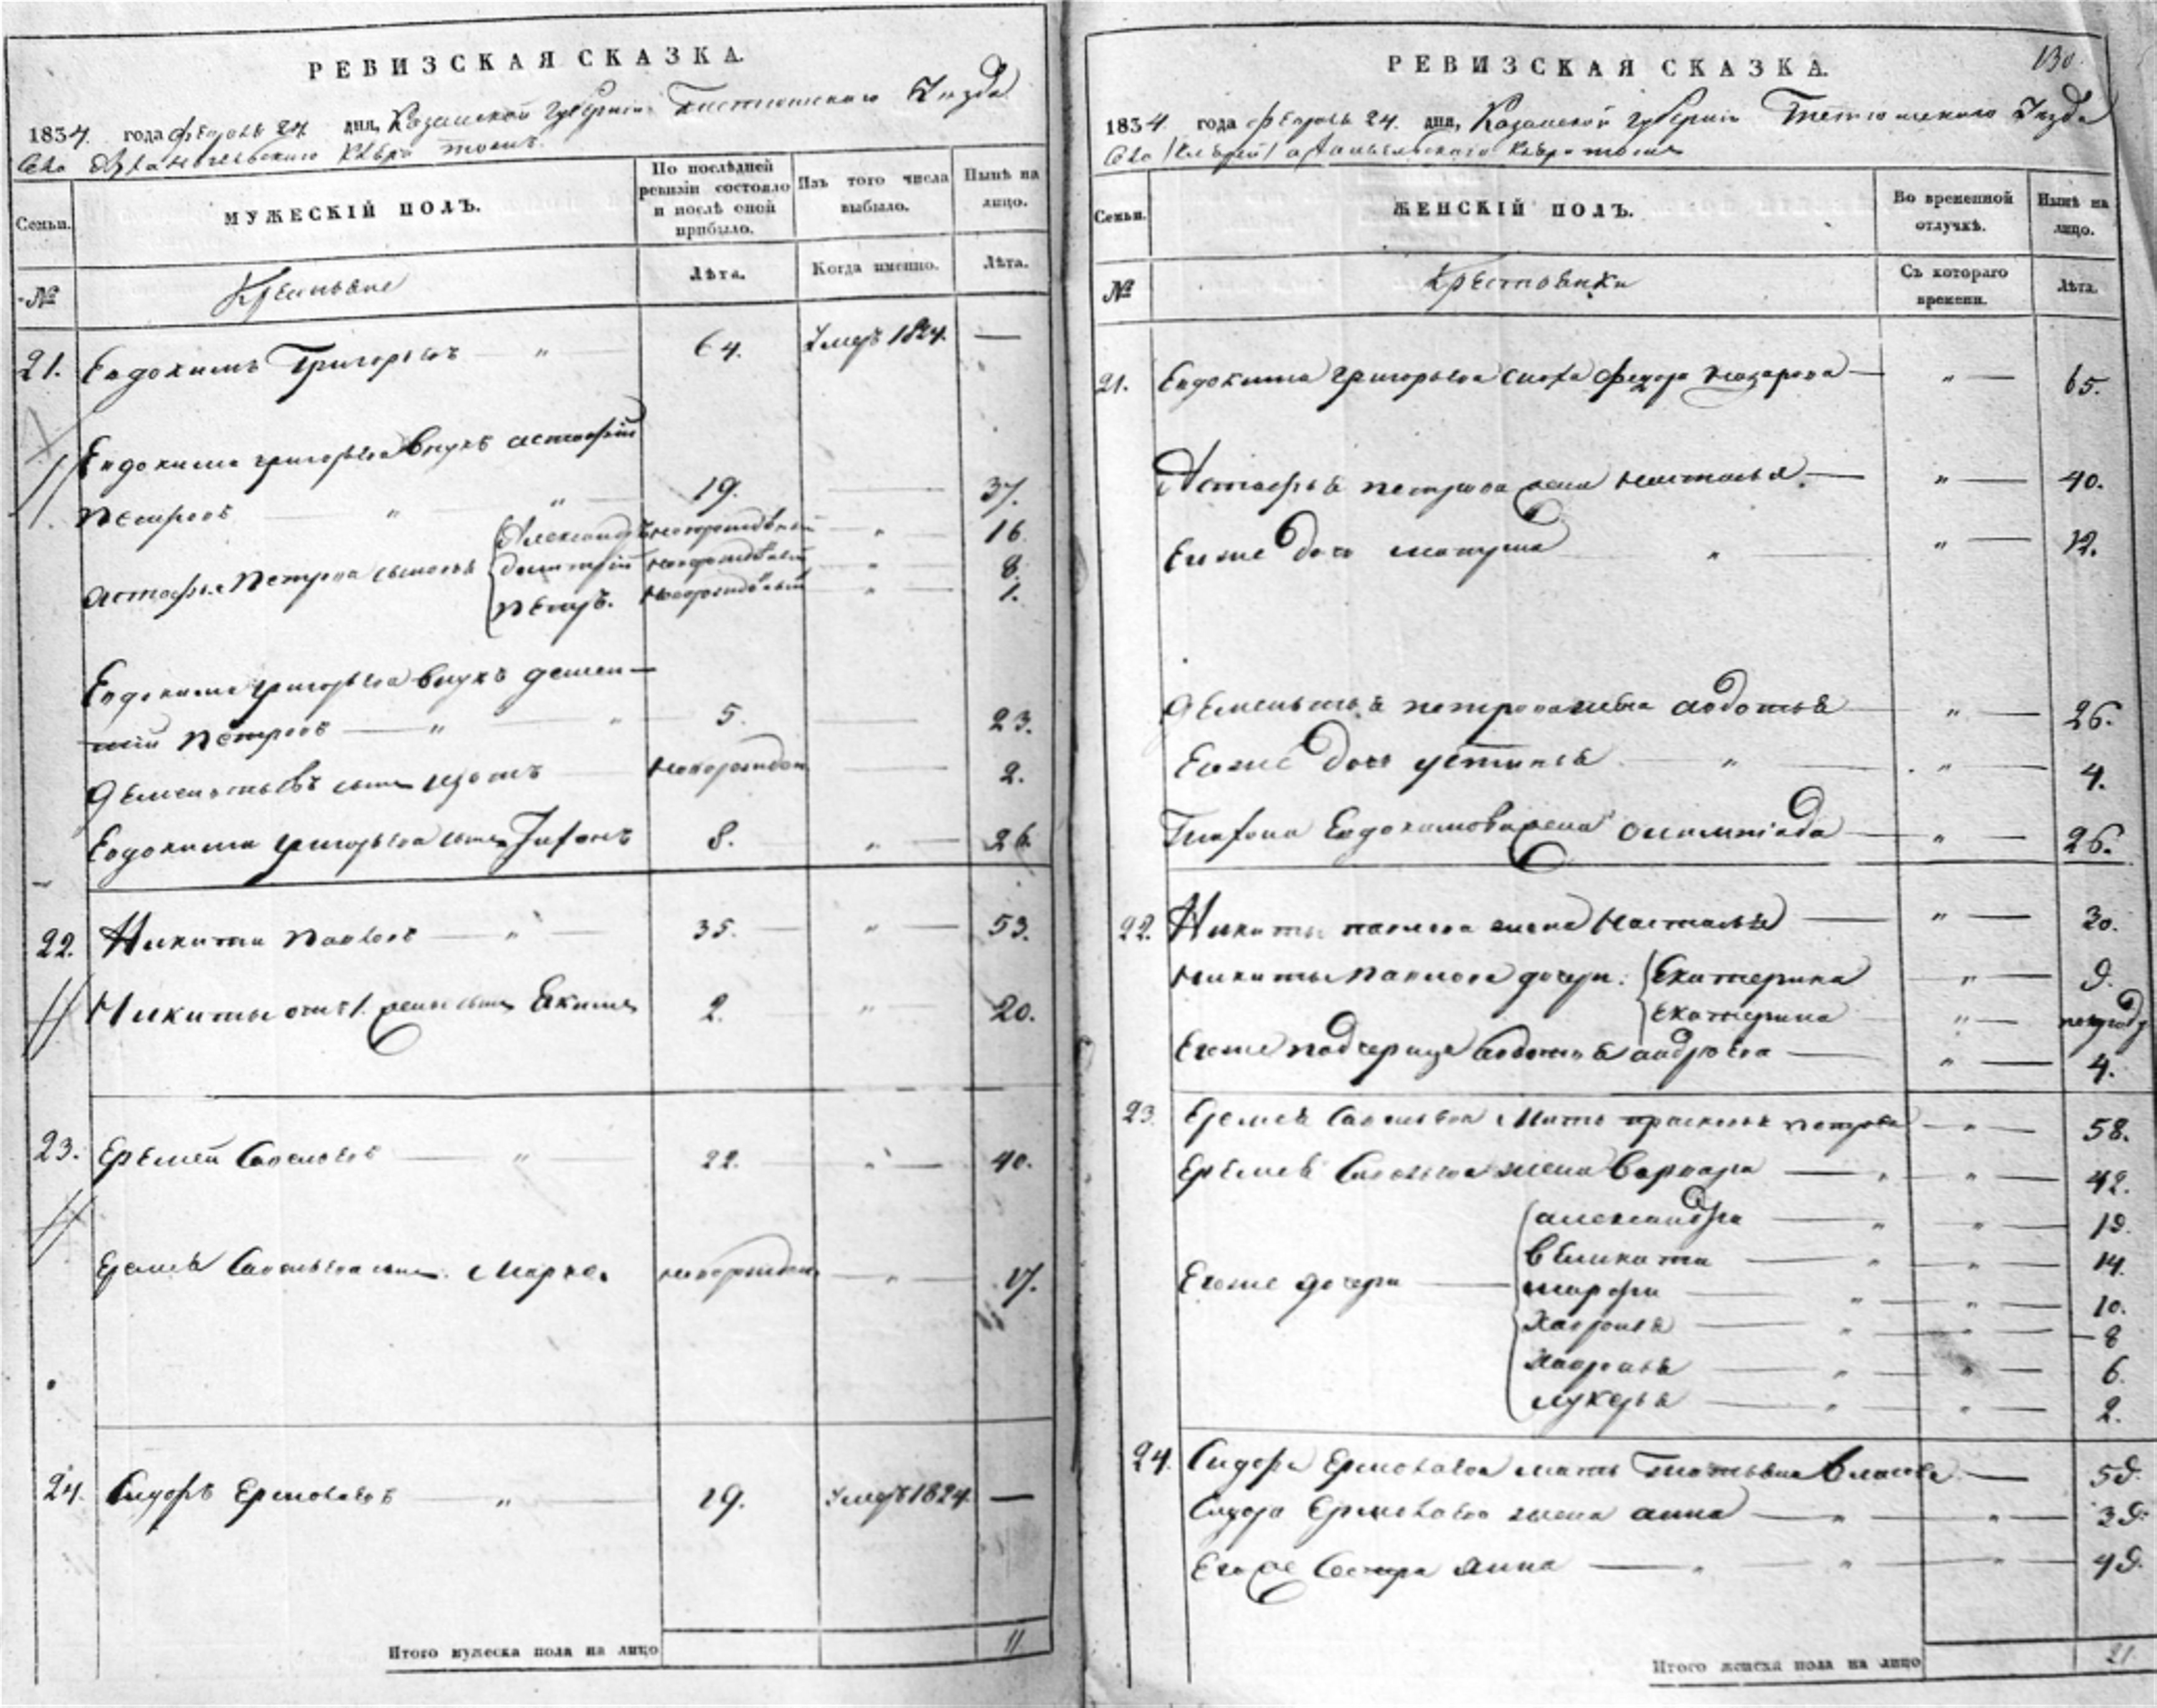 РЕВИЗСКАЯ СКАЗКА.
1834 года февраля 24 дня, Казанской Губернии Тетюшского Уезда
Села Архангельского тожъ.
Семьи.
МУЖЕСКІЙ ПОЛЪ.
По послѣдней ревизіи состояло и послѣ оной прибыло.
Изъ того числа выбыло.
Нынѣ на лицо.
№
Крестьяне
Лѣта.
Когда именно.
Лѣта.
21. Евдокимъ Григорьевъ " 64. Умеръ 1824. —
Евдокима Григорьева внукъ астафий
петровъ " " 19. — 37.
Александръ новорожденный " 16
астафья Петрова сыновья дмитрий новорожденный " 8
петръ. новорожденный " 1.
Евдокима григорьева внукъ демен-
тий петровъ " " 5. — 23.
дементьевъ сынъ новорожден — 2.
Евдокима григорьева сынъ 8. " 26
22. Никита павловъ " 35. " 53.
Никиты отъ 1. жены сынъ Екимъ 2. " 20.
23. Еремей Савельевъ " 22. " 40.
Еремея Савельева сынъ Марке. новорожден. " 17.
24. Сидоръ Ермолаевъ " 19. Умеръ 1824 —
Итого мужеска пола на лицо 11
РЕВИЗСКАЯ СКАЗКА.
130
1834. года февраля 24. дня, Казанской губернии Тетюшского Уезда
Села архангельского тожъ
Семьи.
ЖЕНСКІЙ ПОЛЪ.
Во временной отлучкѣ.
Нынѣ на лицо.
№
Крестьянки
Съ котораго времени.
Лѣта.
21. Евдокима григорьева сноха федора назарова " 65.
Астафья петрова жена наталья. " 40.
Ево же дочь матрена " " 12.
дементья петрова жена авдотья " 26.
Евоже дочь устинья " " 4.
Евдокимова жена олимпіада " 26.
22. Никиты павлова жена Наталья " 30.
Никиты павлова дочери: Екатерина " 9.
Екатерина " полгоду
Евоже падчерица авдотья андреева " 4.
23. Еремея Савельева Мать прасковья петрова " 58.
Еремея Савельева жена варвара " 42.
александра " " 19.
" " 14.
Евоже дочери марфа " " 10.
Хавронья " " 8
" " 6.
лукерья " " 2.
24. Сидора Ермолаева мать Татьяна власова — 59.
Сидора Ермолаева жена анна " " 39.
Евоже Сестра Анна " " " 49.
Итого женска пола на лицо 21